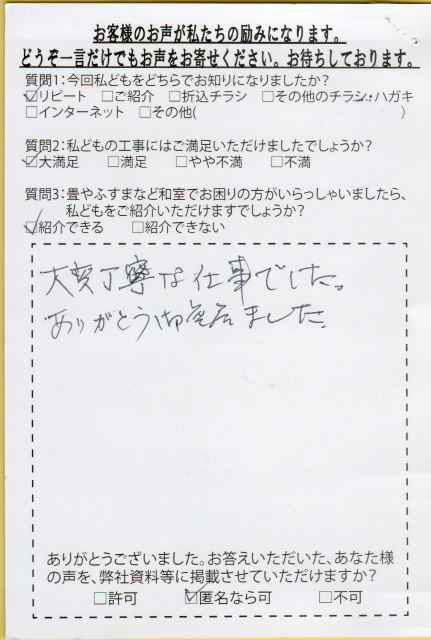 お客様のお声が私たちの励みになります。
どうぞ一言だけでもお声をお寄せください。お待ちしております。
質問1：今回私どもをどちらでお知りになりましたか？
☑リピート　□ご紹介　□折込チラシ　□その他のチラシ・ハガキ
□インターネット　□その他(　　　　　　　　　　)
質問2：私どもの工事にはご満足いただけましたでしょうか？
☑大満足　□満足　□やや不満　□不満
質問3：畳やふすまなど和室でお困りの方がいらっしゃいましたら、
私どもをご紹介いただけますでしょうか？
☑紹介できる　□紹介できない
大変丁寧な仕事でした。
ありがとう御座居ました
ありがとうございました。お答えいただいた、あなた様
の声を、弊社資料等に掲載させていただけますか？
□許可　☑匿名なら可　□不可